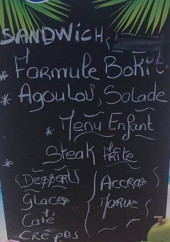 SANDWich,
* Formule Bokit
* Agoulou, Salade
* Menu Enfant
* Steak frite
Desserts
Glaces
Café
Crêpes
Accras